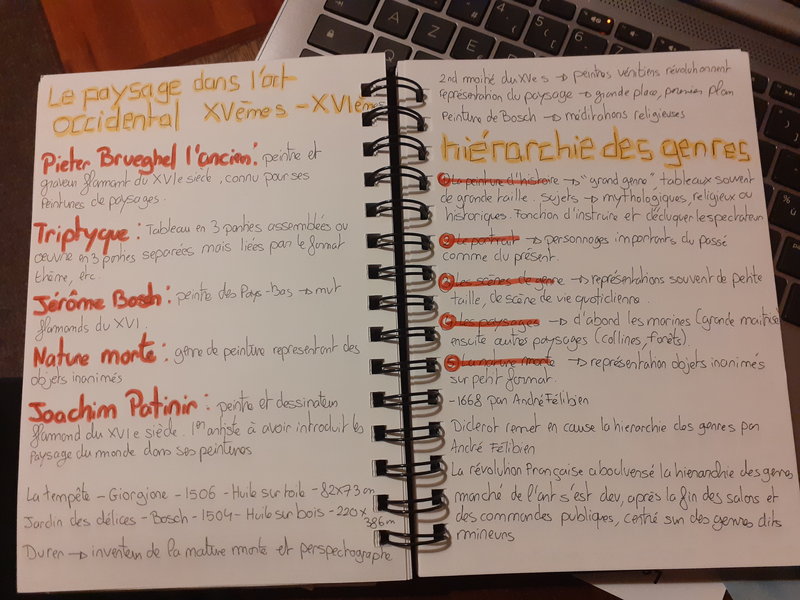 Le paysage dans l'art
occidental XVèmes - XVIèmes
Pieter Brueghel l'ancien : peintre et
graveur flamand du XVIe siècle, connu pour ses
Peintures de paysages.
Triptyque : Tableau en 3 parties assemblées ou
oeuvre en 3 parties separées mais liées par le format
thème, etc.
Jérôme Bosch : peintre des Pays-bas → mvt
flamands du XVI.
Nature morte : genre de peinture representant des
objets inanimés
Joachim Patinir : peintre et dessinateur
flamand du XVIe siècle. 1er artiste à avoir introduit les
Paysage du monde dans ses peintures
La tempête - Giorgione - 1506 - Huile sur toile - 82x73 cm
Jardin des délices - Bosch - 1504 - Huile sur bois - 220x
386 m
Durer → inventeur de la nature morte et perspectographe
2nd moitié du XVe s → peintres vénitiens révolutionnent
représentation du paysage → grande place, premier plan
Peinture de Bosch → méditations religieuses
hiérarchie des genres
1 La peinture d'histoire → "grand genre" tableaux souvent
de grande taille. sujets → mythologiques, religieux ou
historiques. Fonction d'instruire et d'éduquer les spectateur
2 Le portrait → personnages importants du passé
comme du présent.
3 Les scènes de genre → représentations souvent de petite
taille, de scène de vie quotidienne.
4 Les paysages → d'abord les marines (grande maitrise)
ensuite autres paysages (collines, forêts).
5 La nature morte → représentation objets inanimés
sur petit format.
- 1668 par André Félibien
Diderot remet en cause la hierarchie des genres par
André Félibien
La révolution Française a bouleversé la hierarchie des genres
marché de l'art s'est dev, après la fin des salons et
des commandes publiques, centré sur des genres dits
mineurs
A Z E
4 5